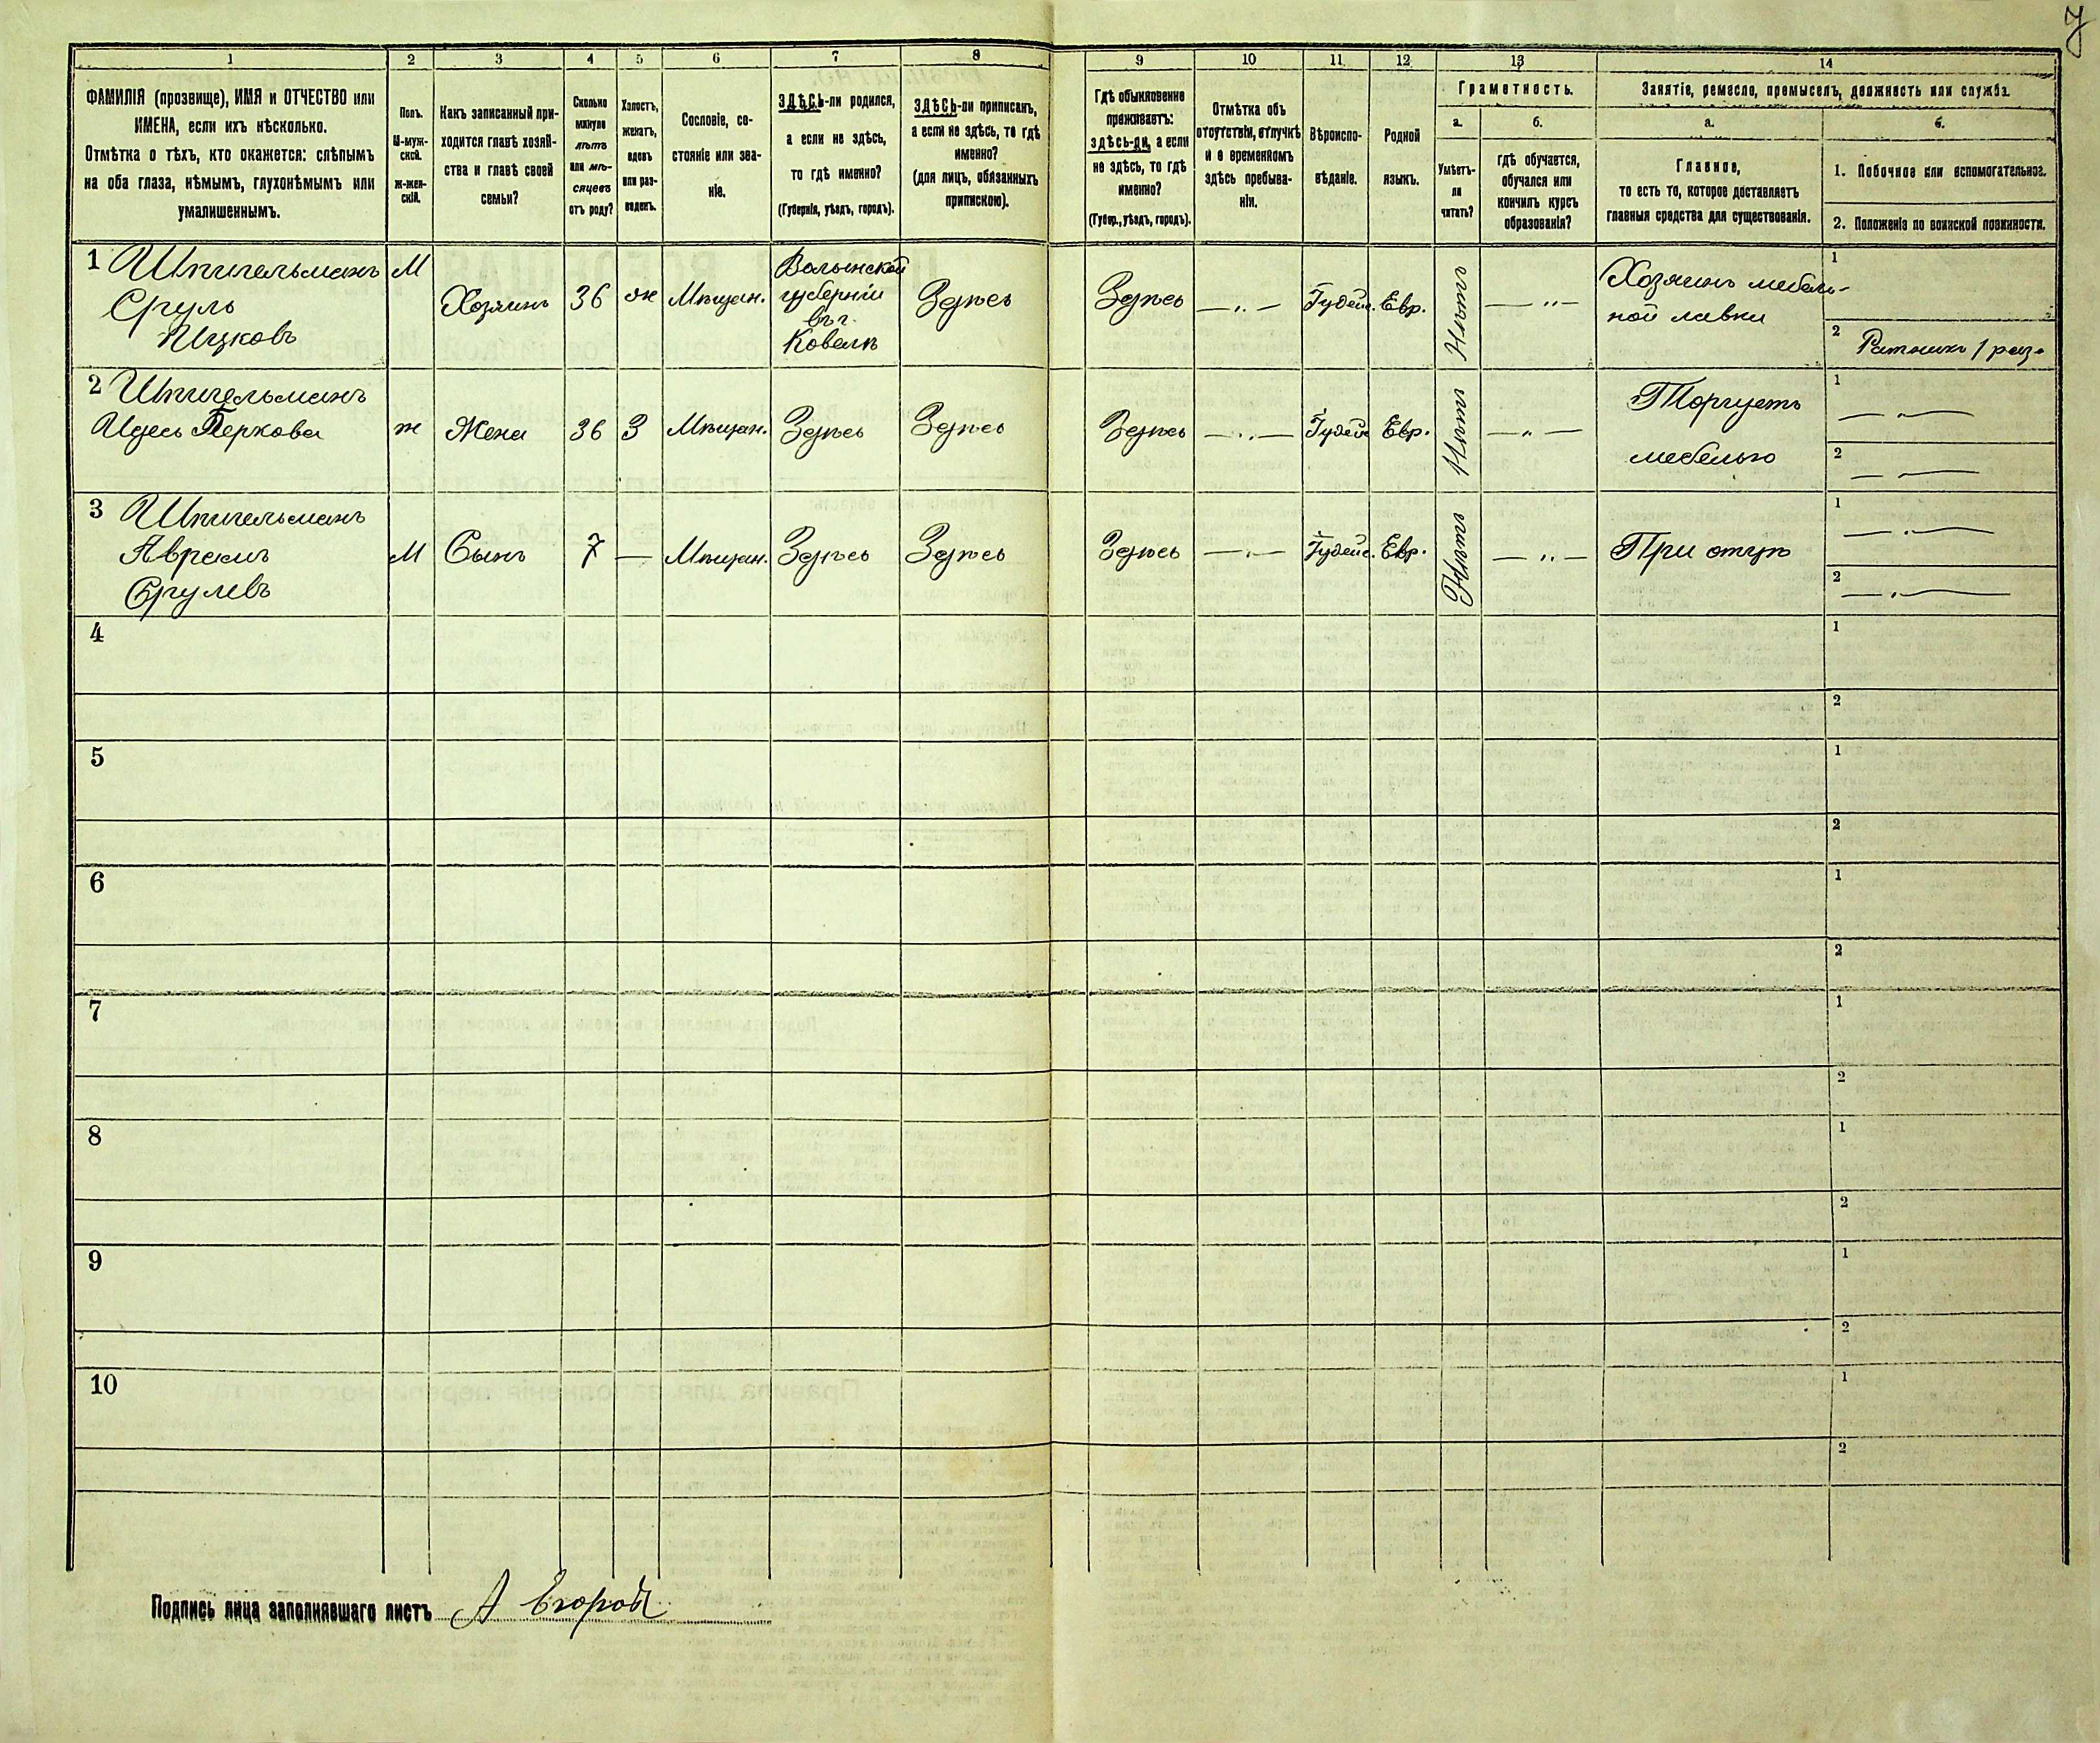 7
1 2 3 4 5 6 7 8 9 10 11 12 13 14
ФАМИЛІЯ (прозвище), ИМЯ и ОТЧЕСТВО или
ИМЕНА, если ихъ нѣсколько.
Отмѣтка о тѣхъ, кто окажется: слѣпымъ
на оба глаза, нѣмымъ, глухонѣмымъ или
умалишеннымъ.
Полъ.
М-муж-
ской.
ж-жен-
скій.
Какъ записанный при-
ходится главѣ хозяй-
ства и главѣ своей
семьи?
Сколько
минуло
лѣтъ
или мѣ-
сяцевъ
отъ роду?
Холостъ,
женатъ,
вдовъ
или раз-
веденъ.
Сословіе, со-
стояніе или зва-
ніе.
ЗДѢСЬ-ли родился,
а если не здѣсь,
то гдѣ именно?
(Губернія, уѣздъ, городъ).
ЗДѢСЬ-ли приписанъ,
а если не здѣсь, то гдѣ
именно?
(для лицъ, обязанныхъ
припискою).
Гдѣ обыкновенно
проживаетъ:
здѣсь-ли, а если
не здѣсь, то гдѣ
именно?
(Губер., уѣздъ, городъ).
Отмѣтка объ
отсутствіи, отлучкѣ
и о временномъ
здѣсь пребыва-
ніи.
Вѣроиспо-
вѣданіе.
Родной
языкъ.
Грамотность.
а.
Умѣетъ-
ли
читать?
б.
гдѣ обучается,
обучался или
кончилъ курсъ
образованія?
Занятіе, ремесло, промыселъ, должность или служба.
а.
Главное,
то есть то, которое доставляетъ
главныя средства для существованія.
б.
1. Побочное или вспомогательное.
2. Положеніе по воинской повинности.
1 Шпигельманъ
Сруль
Ицковъ
М
Хозяинъ
36
ж
Мѣщан.
Волынской
губерніи
въ г.
Ковелѣ
Здѣсь
Здѣсь
— „ —
Іудейс.
Евр.
Нѣтъ
— „ —
Хозяинъ мебель-
ной лавки
1
2 Ратникъ 1 раз.
2 Шпигельманъ
Идесь Беркова
ж
Жена
36
З
Мѣщан.
Здѣсь
Здѣсь
Здѣсь
— „ —
Іудейс
Евр.
Нѣтъ
— „ —
Торгуетъ
мебелью
1 — „ —
2 — „ —
3 Шпигельманъ
Аврамъ
Срулевъ
М
Сынъ
7
—
Мѣщан.
Здѣсь
Здѣсь
Здѣсь
— „ —
Іудейс.
Евр.
Нѣтъ
— „ —
При отцѣ
1 — „ —
2 — „ —
4 1
2
5 1
2
6 1
2
7 1
2
8 1
2
9 1
2
10 1
2
Подпись лица заполнявшаго листъ А Егоров